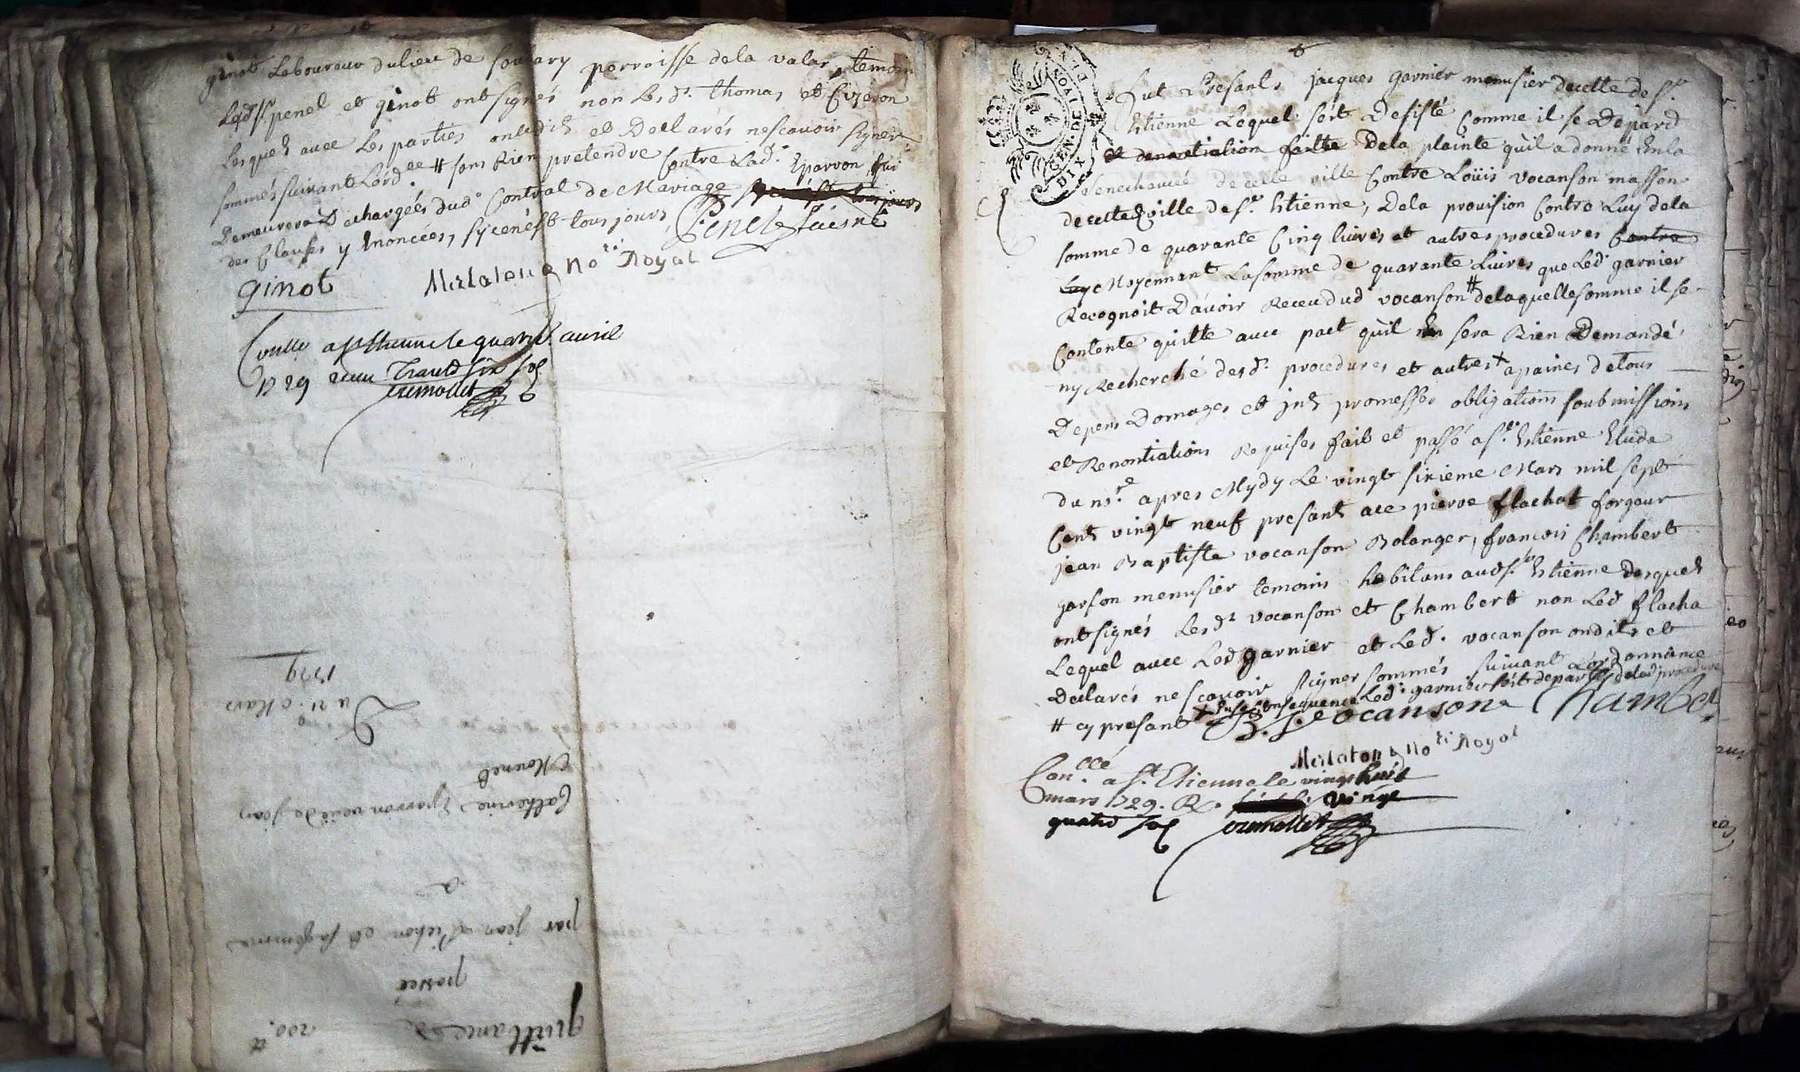 ginot Laboureur du lieu de soulary parroisse de la valas temoin
Lesd. s. penel et ginot ont signés non Lesd. thomas et Cizeron
Lesquels avec Les parties ont dit et Declarés ne scavoir signer
sommés suivant Lord.ce # sans Rien pretendre Contre Lad. Eparvon, qui
Demeurera Dechargées dud. Contrat de Mariage
des Clauses y Enoncées, sy cen'est tous jours
Penel présent
ginot Mertatona no.re Royal
Conllé a St Etienne le quatre avril
1729 Recu Trante six sols
cumollet
Du 21. Mars
1729
Catherine Eparvon veuve de jean
Monnet
par jean Pichon et sa femme
a
passée
quittance de
200. #
DIX GEN. DE LYON
Fut Presant jacques garnier menusier de cette de s.t
Etienne Lequel s'est Desisté Comme il se Depard
et denontiation faitte De la plainte quil a donné En la
senechaucé de cette ville Contre Loüis vocanson masson
de cette ville de s.t Etienne, De la provision Contre Luy de la
somme de quarante Cinq livres et autres procedures Contre
Luy Moyennant La somme de quarante Livres que Led. garnier
Recognoit D'avoir Receu dud vocanson # de laquelle somme il se
Contente quitte avec pact quil n'en sera Rien Demandé
ny Recherché desd. procedures et autres + a paines de tous
Depens Domages et jnt. promesses obligations soubmissions
et Renontiations Requises fait et passé a s.t Etienne Etude
du no.re apres Mydy Le vingt sixieme Mars mil sept
Cent vingt neuf presant ace pierre flachat forgeur
jean Baptiste vocanson Bolanger, francois Chambert
garson menusier temoins habitans aud s.t Etienne desquels
ont signés Lesd. vocanson et Chambert non Led flacha
Lequel avec Led garnier et Led. vocanson ont dit et
Declarés ne scavoir signer sommés suivant Lordonnance
# cy presant + En Consequence Led. garnier s'est departy de lad procedure
J. B. Vocanson Chambert
Mertatona no.re Royal
Con.llé a St. Etienne le vingt huit
mars 1729. R. vingt
quatre sols cumollet